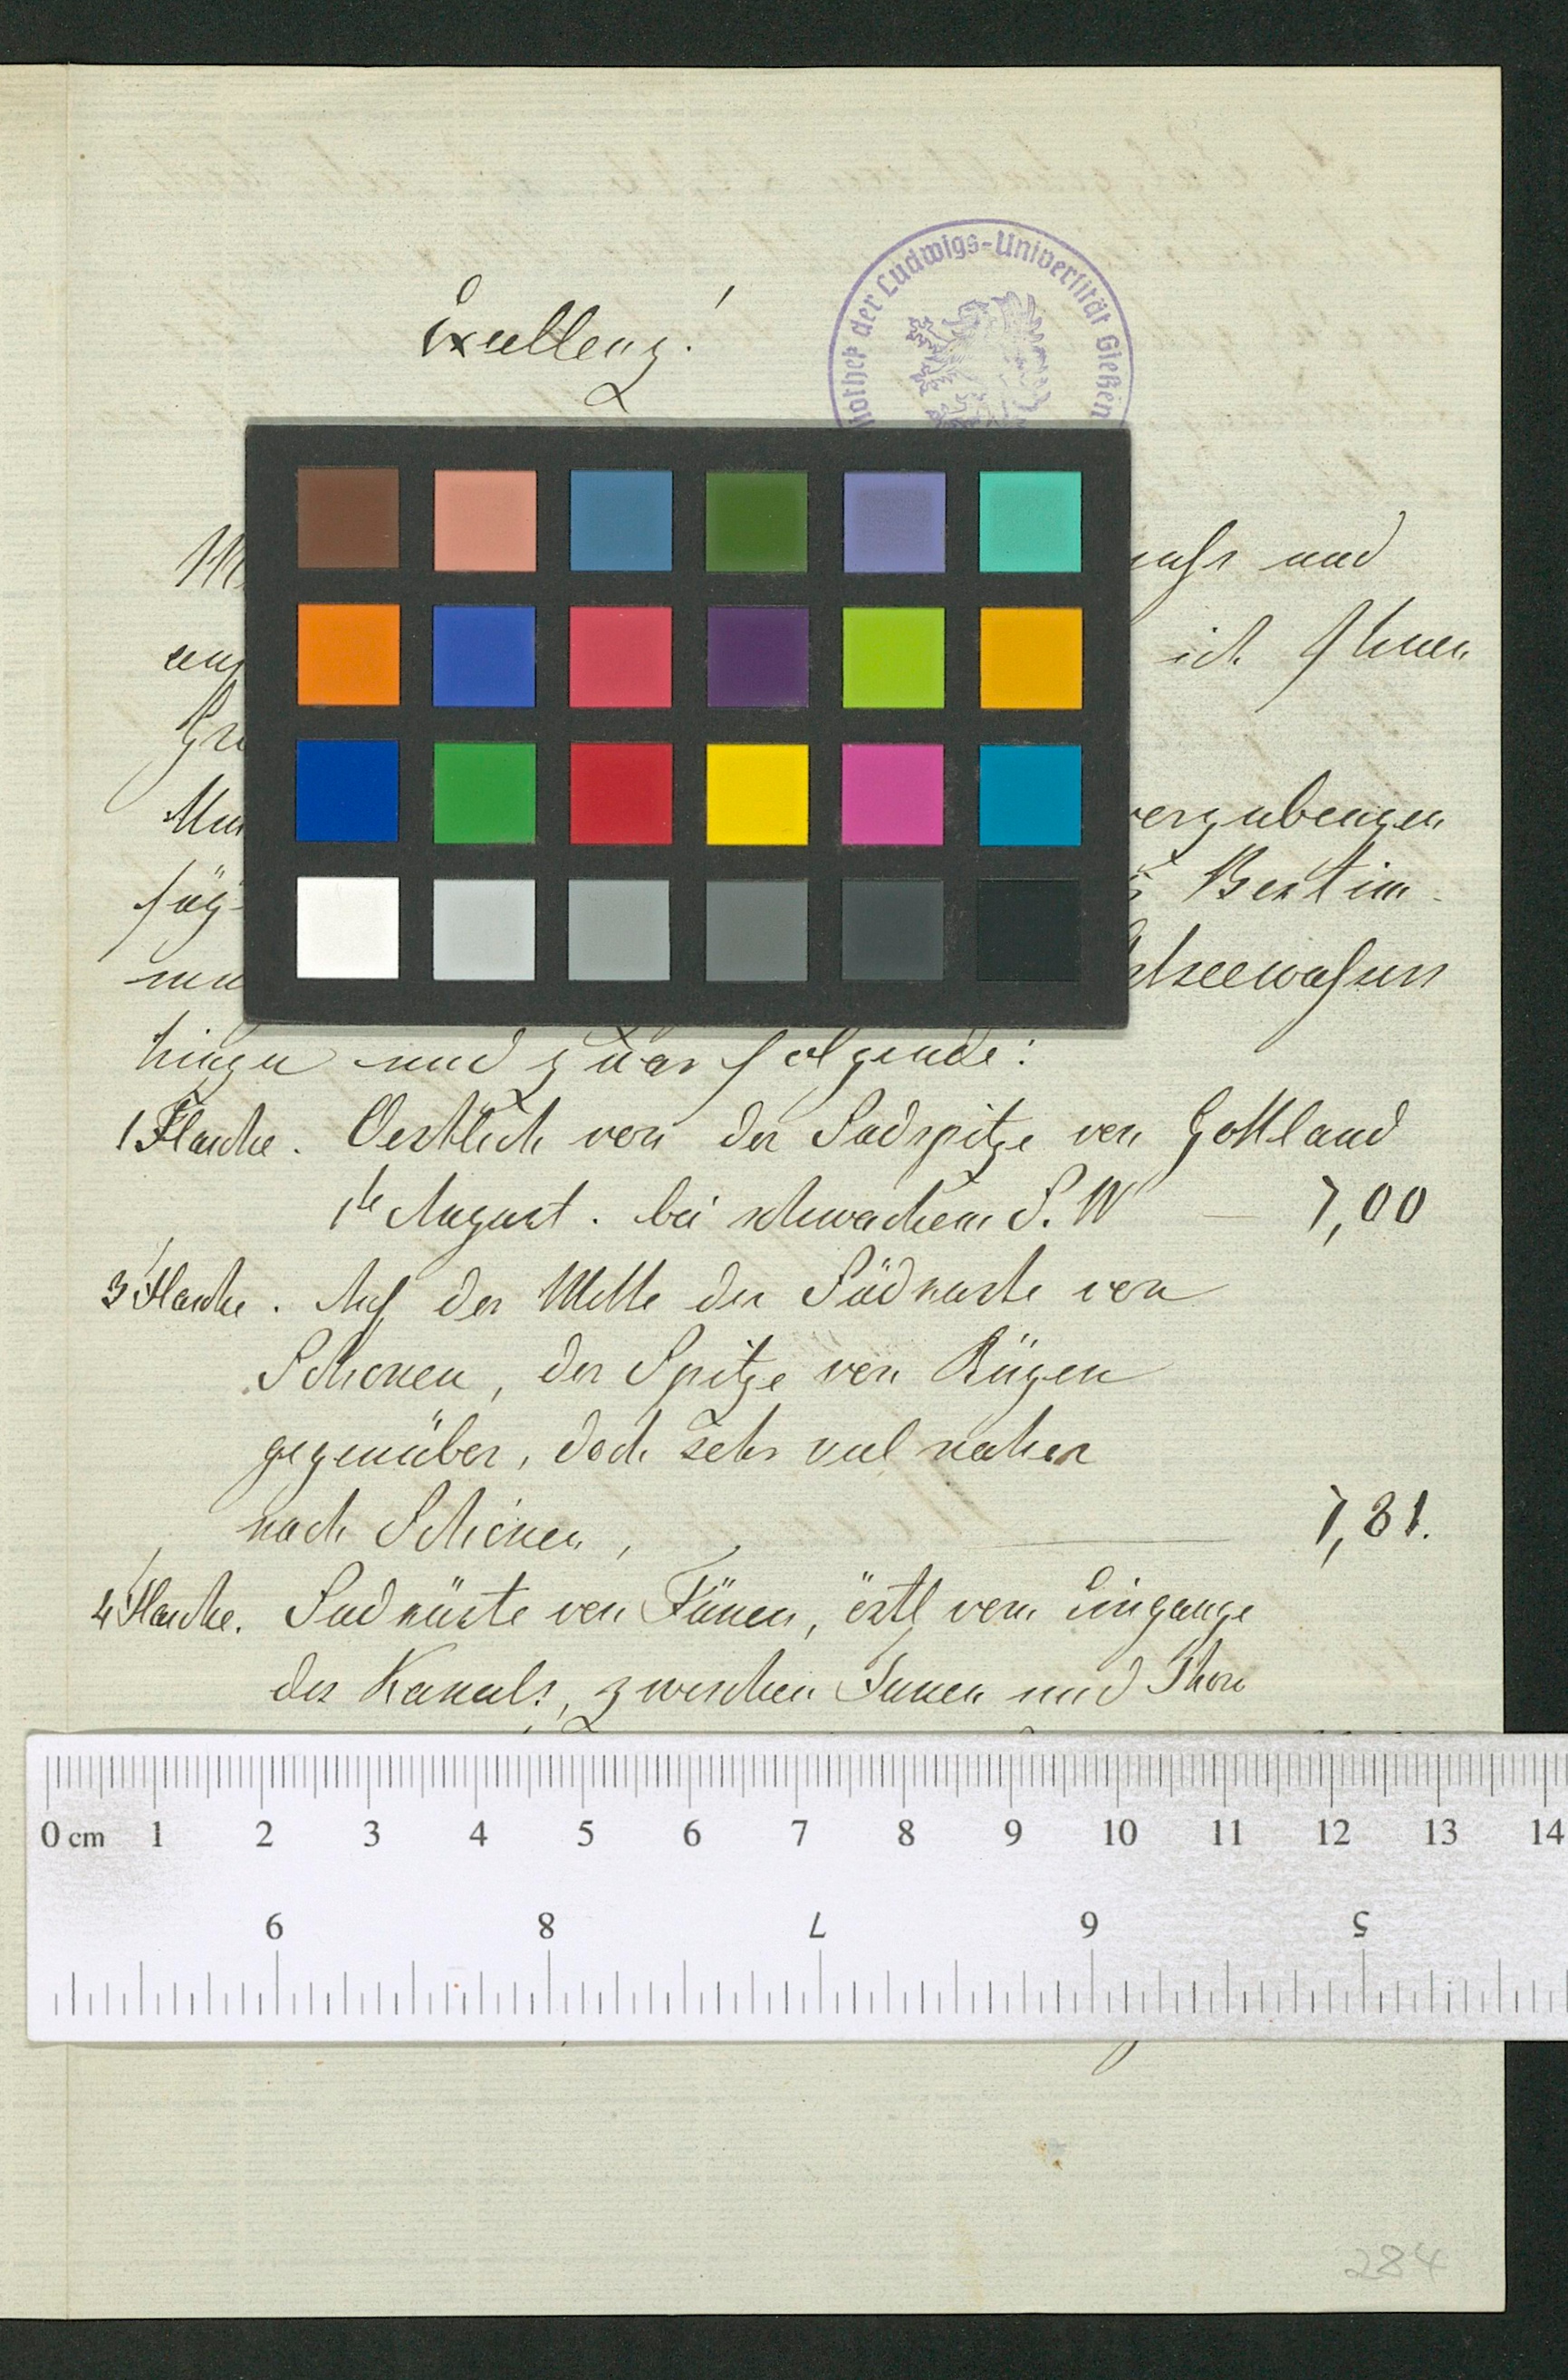 Excellenz!
othek der Ludwigs-Universität Gießen
und
ich Ihnen
verzubeugen
füg
Bestim-
Ostseewassers
hinzu und zwar folgende:
1 Flasche. Oestlich von der Südspitze von Gottland
1te August. bei schwachem S.W — 7,00
3 Flasche. Auf der Mitte der Südküste von
Schonen, der Spitze von Rügen
gegenüber, doch sehr viel näher
nach Schonen, — 7,81.
4 Flasche. Südküste von Fünen, östl vom Eingange
des Kanals, zwischen Fünen und Thorö
0 cm 1 2 3 4 5 6 7 8 9 10 11 12 13 14
9 8 7 6 5
284